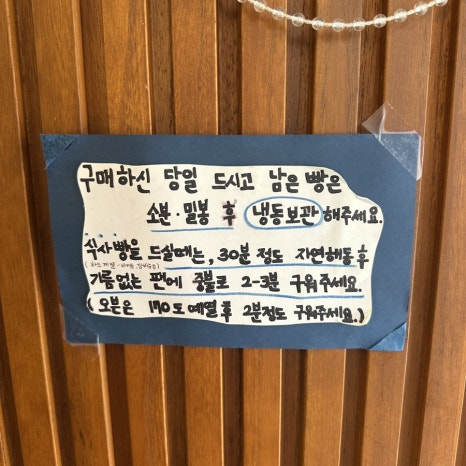 구매하신 당일 드시고 남은 빵은
소분·밀봉 후 냉동보관 해주세요.
식사빵을 드실때는, 30분 정도 자연해동 후
기름없는 팬에 중불로 2-3분 구워주세요.
( 오븐은 170도 예열 후 2분정도 구워주세요.)